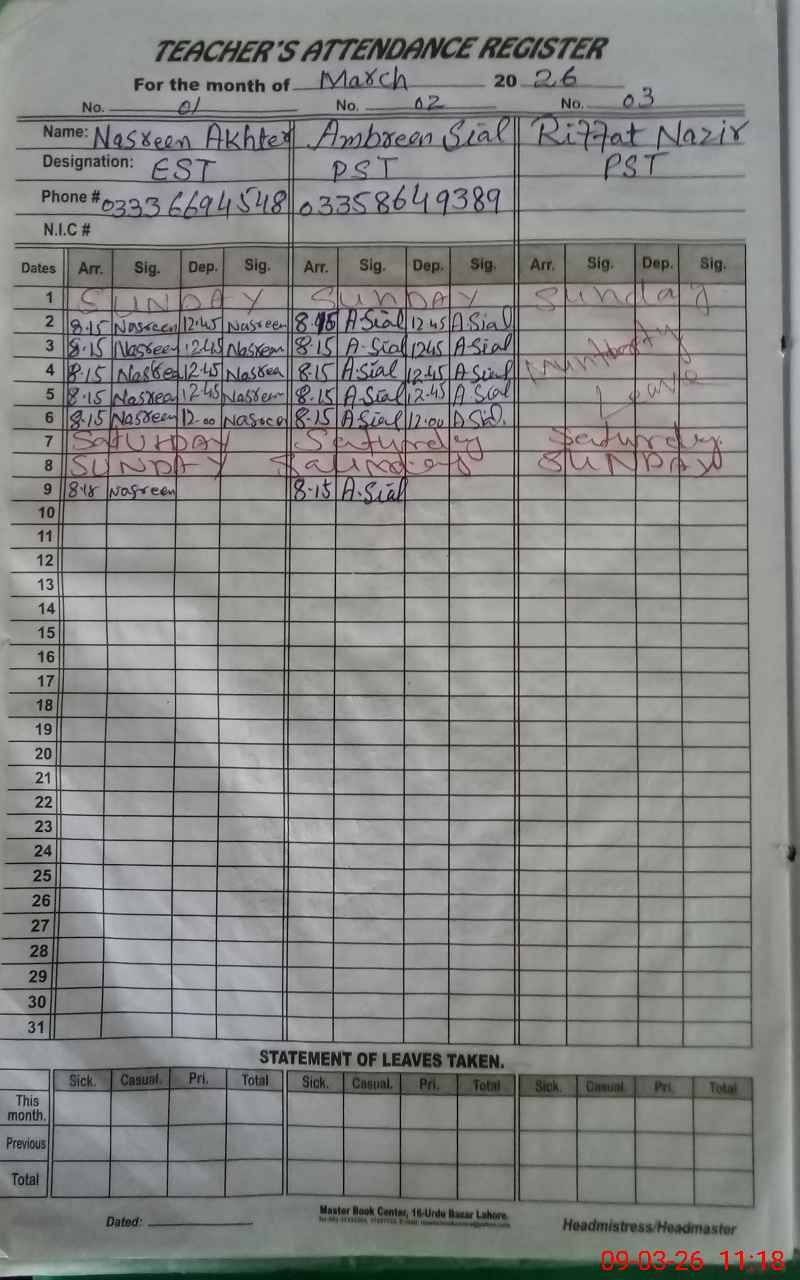 TEACHER'S ATTENDANCE REGISTER
For the month of March 20 26
No. 01 No. 02 No. 03
Name: Nasreen Akhter Ambreen Sial Riffat Nazir
Designation: EST PST PST
Phone # 03336694548 03358649389
N.I.C #
Dates Arr. Sig. Dep. Sig. Arr. Sig. Dep. Sig. Arr. Sig. Dep. Sig.
1 SUNDAY SUNDAY Sunday
2 8.15 Nasreen 12.45 Nasreen 8.15 A.Sial 12.45 A.Sial
3 8.15 Nasreen 12.45 Nasreen 8.15 A.Sial 1245 A.Sial
4 8.15 Nasreen 12.45 Nasreen 8.15 A.Sial 12.45 A.Sial
5 8.15 Nasreen 12.45 Nasreen 8.15 A.Sial 12.45 A.Sial Leave
6 8.15 Nasreen 12.00 8.15 A.Sial 12.00 A.Sial.
7 SaTURDAY Saturday Saturday.
8 SUNDAY SUNDAY
9 Nasreen 8.15 A.Sial
10
11
12
13
14
15
16
17
18
19
20
21
22
23
24
25
26
27
28
29
30
31
STATEMENT OF LEAVES TAKEN.
Sick. Casual. Pri. Total Sick. Casual. Pri. Total Sick. Casual. Pri. Total
This month.
Previous
Total
Master Book Center, 16-Urdu Bazar Lahore.
Dated: Headmistress/Headmaster
09-03-26 11:18